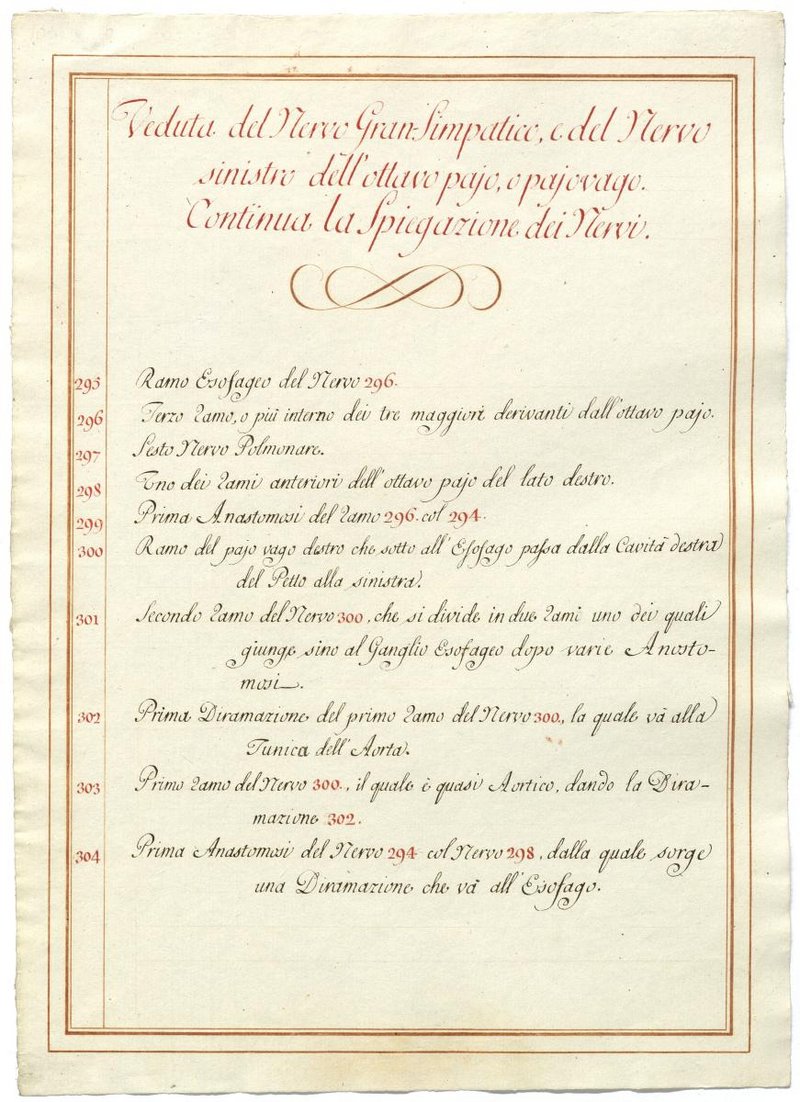 Veduta del Nervo Gran-Simpatico, e del Nervo
sinistro dell'ottavo pajo, o pajovago.
Continua la Spiegazione dei Nervi.
295 Ramo Esofageo del Nervo 296.
296 Terzo ramo, o più interno dei tre maggiori derivanti dall'ottavo pajo.
297 Sesto Nervo Polmonare.
298 Uno dei rami anteriori dell'ottavo pajo del lato destro.
299 Prima Anastomosi del ramo 296. col 294.
300 Ramo del pajo vago destro che sotto all'Esofago passa dalla Cavità destra
del Petto alla sinistra.
301 Secondo ramo del Nervo 300, che si divide in due rami uno dei quali
giunge sino al Ganglio Esofageo dopo varie Anosto-
mosi.
302 Prima Diramazione del primo ramo del Nervo 300., la quale và alla
Tunica dell'Aorta.
303 Primo ramo del Nervo 300., il quale è quasi Aortico, dando la Dira-
mazione 302.
304 Prima Anastomosi del Nervo 294 col Nervo 298, dalla quale sorge
una Diramazione che và all'Esofago.